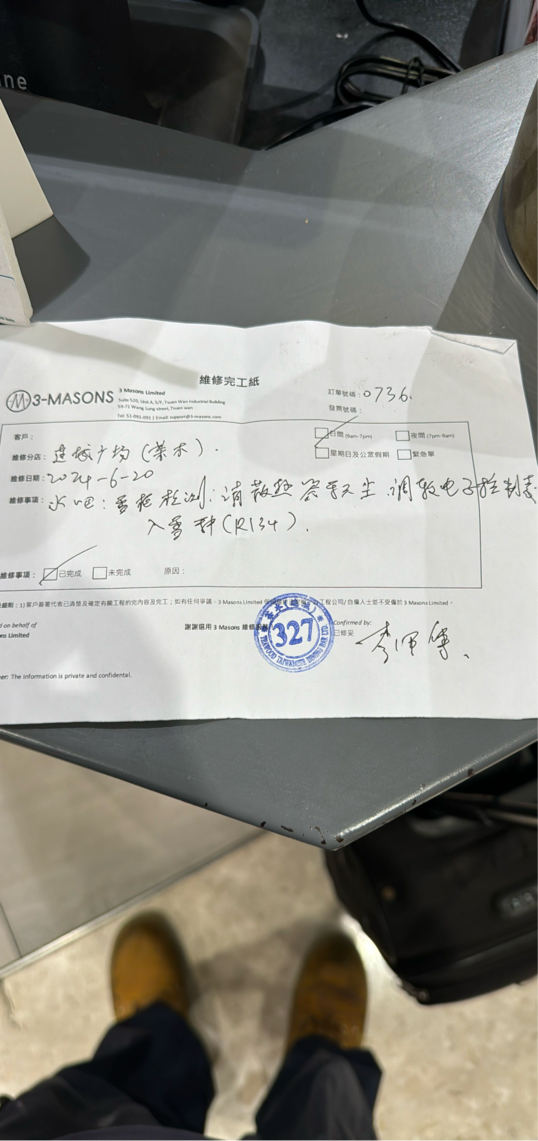 ne
維修完工紙
3-MASONS
3 Masons Limited
Suite 520, Unit A, 5/F, Tsuen Wan Industrial Building
59-71 Wang Lung street, Tsuen wan
Email: support@3-masons.com
訂單號碼：0736
發票號碼：
客戶：
日間 (9am-7pm)
夜間 (7pm-9am)
星期日及公眾假期
緊急單
維修分店：连城广场(茶木).
維修日期：2024-6-20
維修事項：水吧：雪柜检测，清散热 尘，调教电子控制表
入雪种(R134).
維修事項：
已完成
未完成
原因：
1) 客戶簽署代表已清楚及確定有關工程的完內容及完工；如有任何爭議，3 Masons Limited
工程公司/自僱人士並不受僱於 3 Masons Limited。
on behalf of
ns Limited
謝謝選用 3 Masons 維修
327
Confirmed by:
已修妥
er: The information is private and confidential.